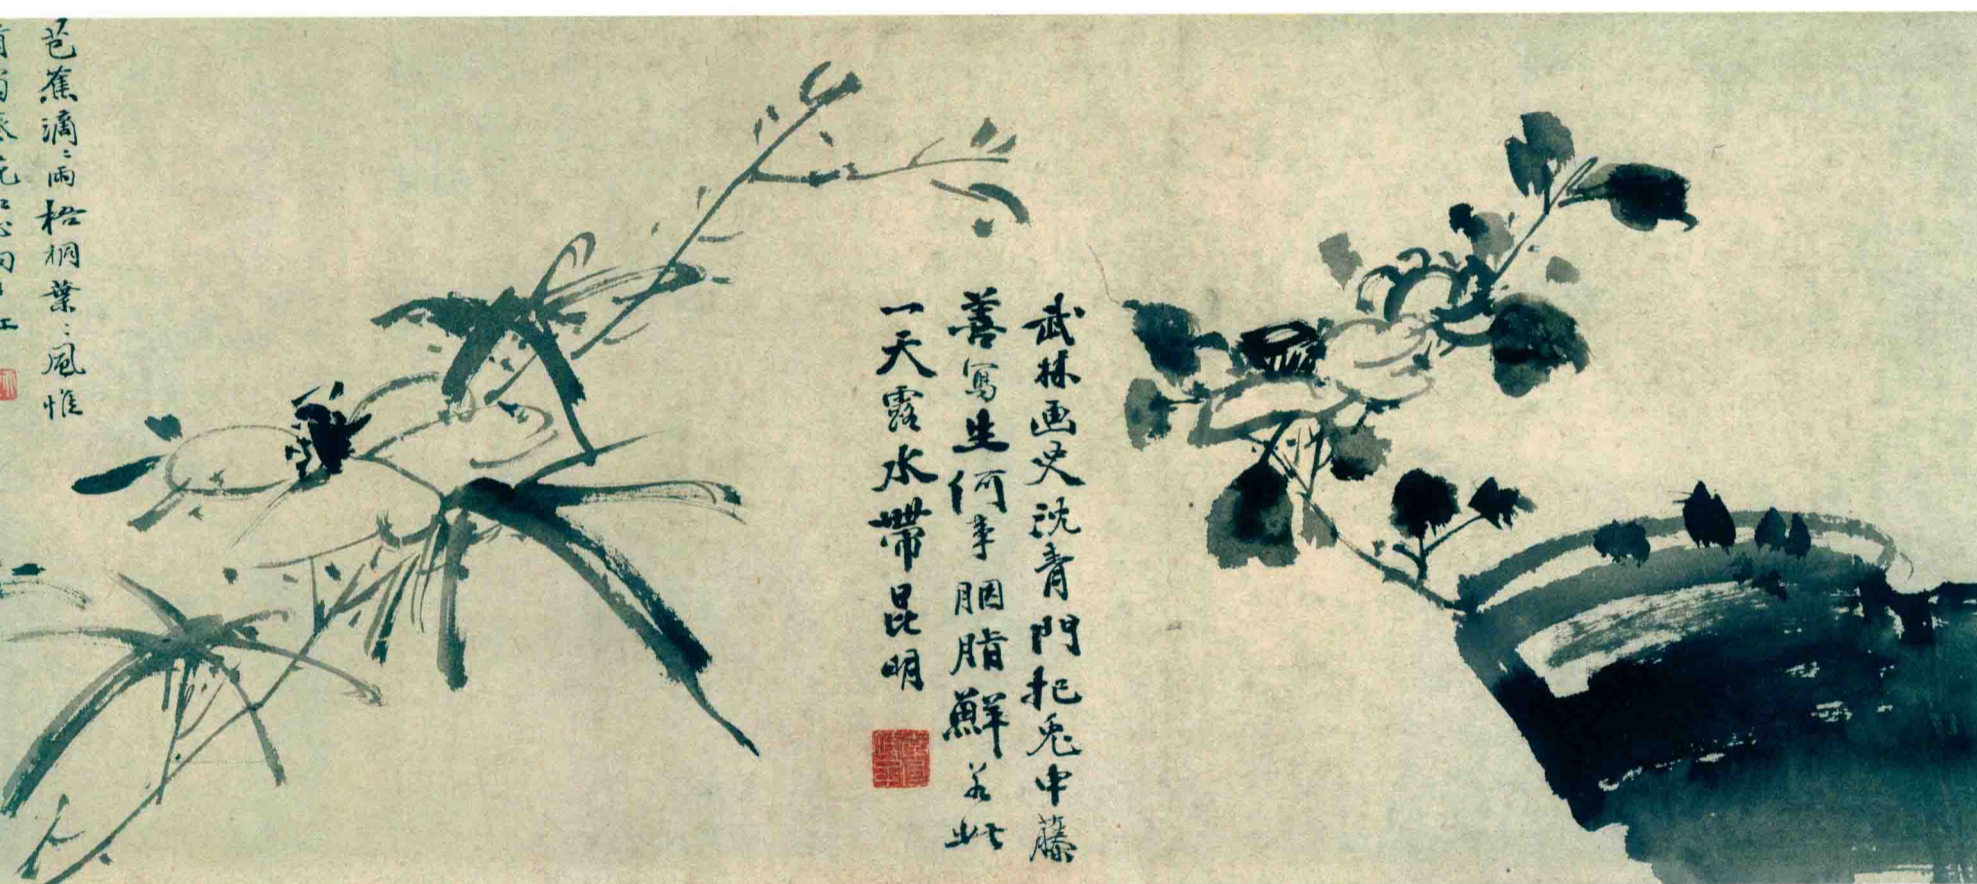 武林画史沈青門把兎申藤
善寫生何事胭脂鮮若此
一天露水帶昆明
芭蕉滴〻雨梧桐葉〻風惟